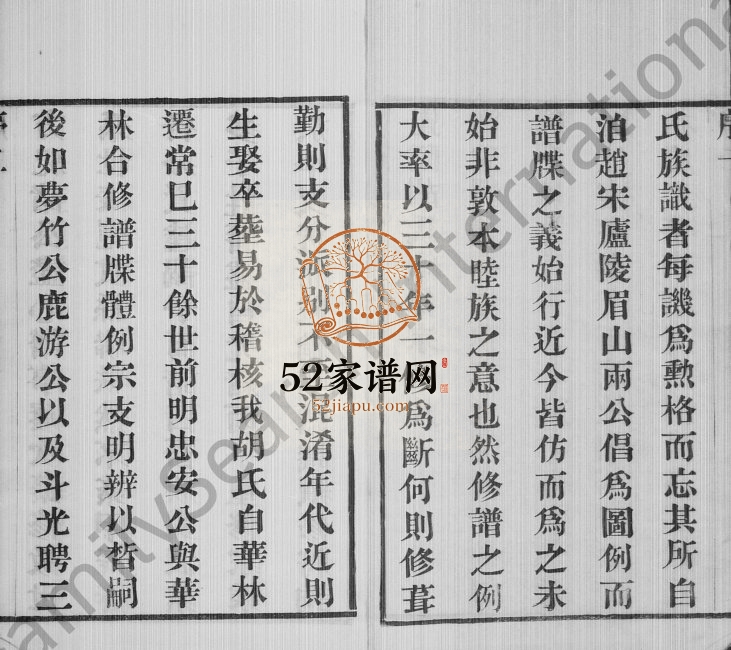 氏族識者每譏爲勲格而忘其所自
洎趙宋廬陵眉山兩公倡爲圖例而
譜牒之義始行近今皆仿而爲之未
始非敦本睦族之意也然修譜之例
大率以三十年一爲斷何則修葺
勤則支分派別不混淆年代近則
生娶卒塟易於稽核我胡氏自華林
遷常巳三十餘世前明忠安公與華
林合修譜牒體例宗支明辨以晳嗣
後如夢竹公鹿游公以及斗光聘三
52家谱网
52jiapu.com
FamilySearch International